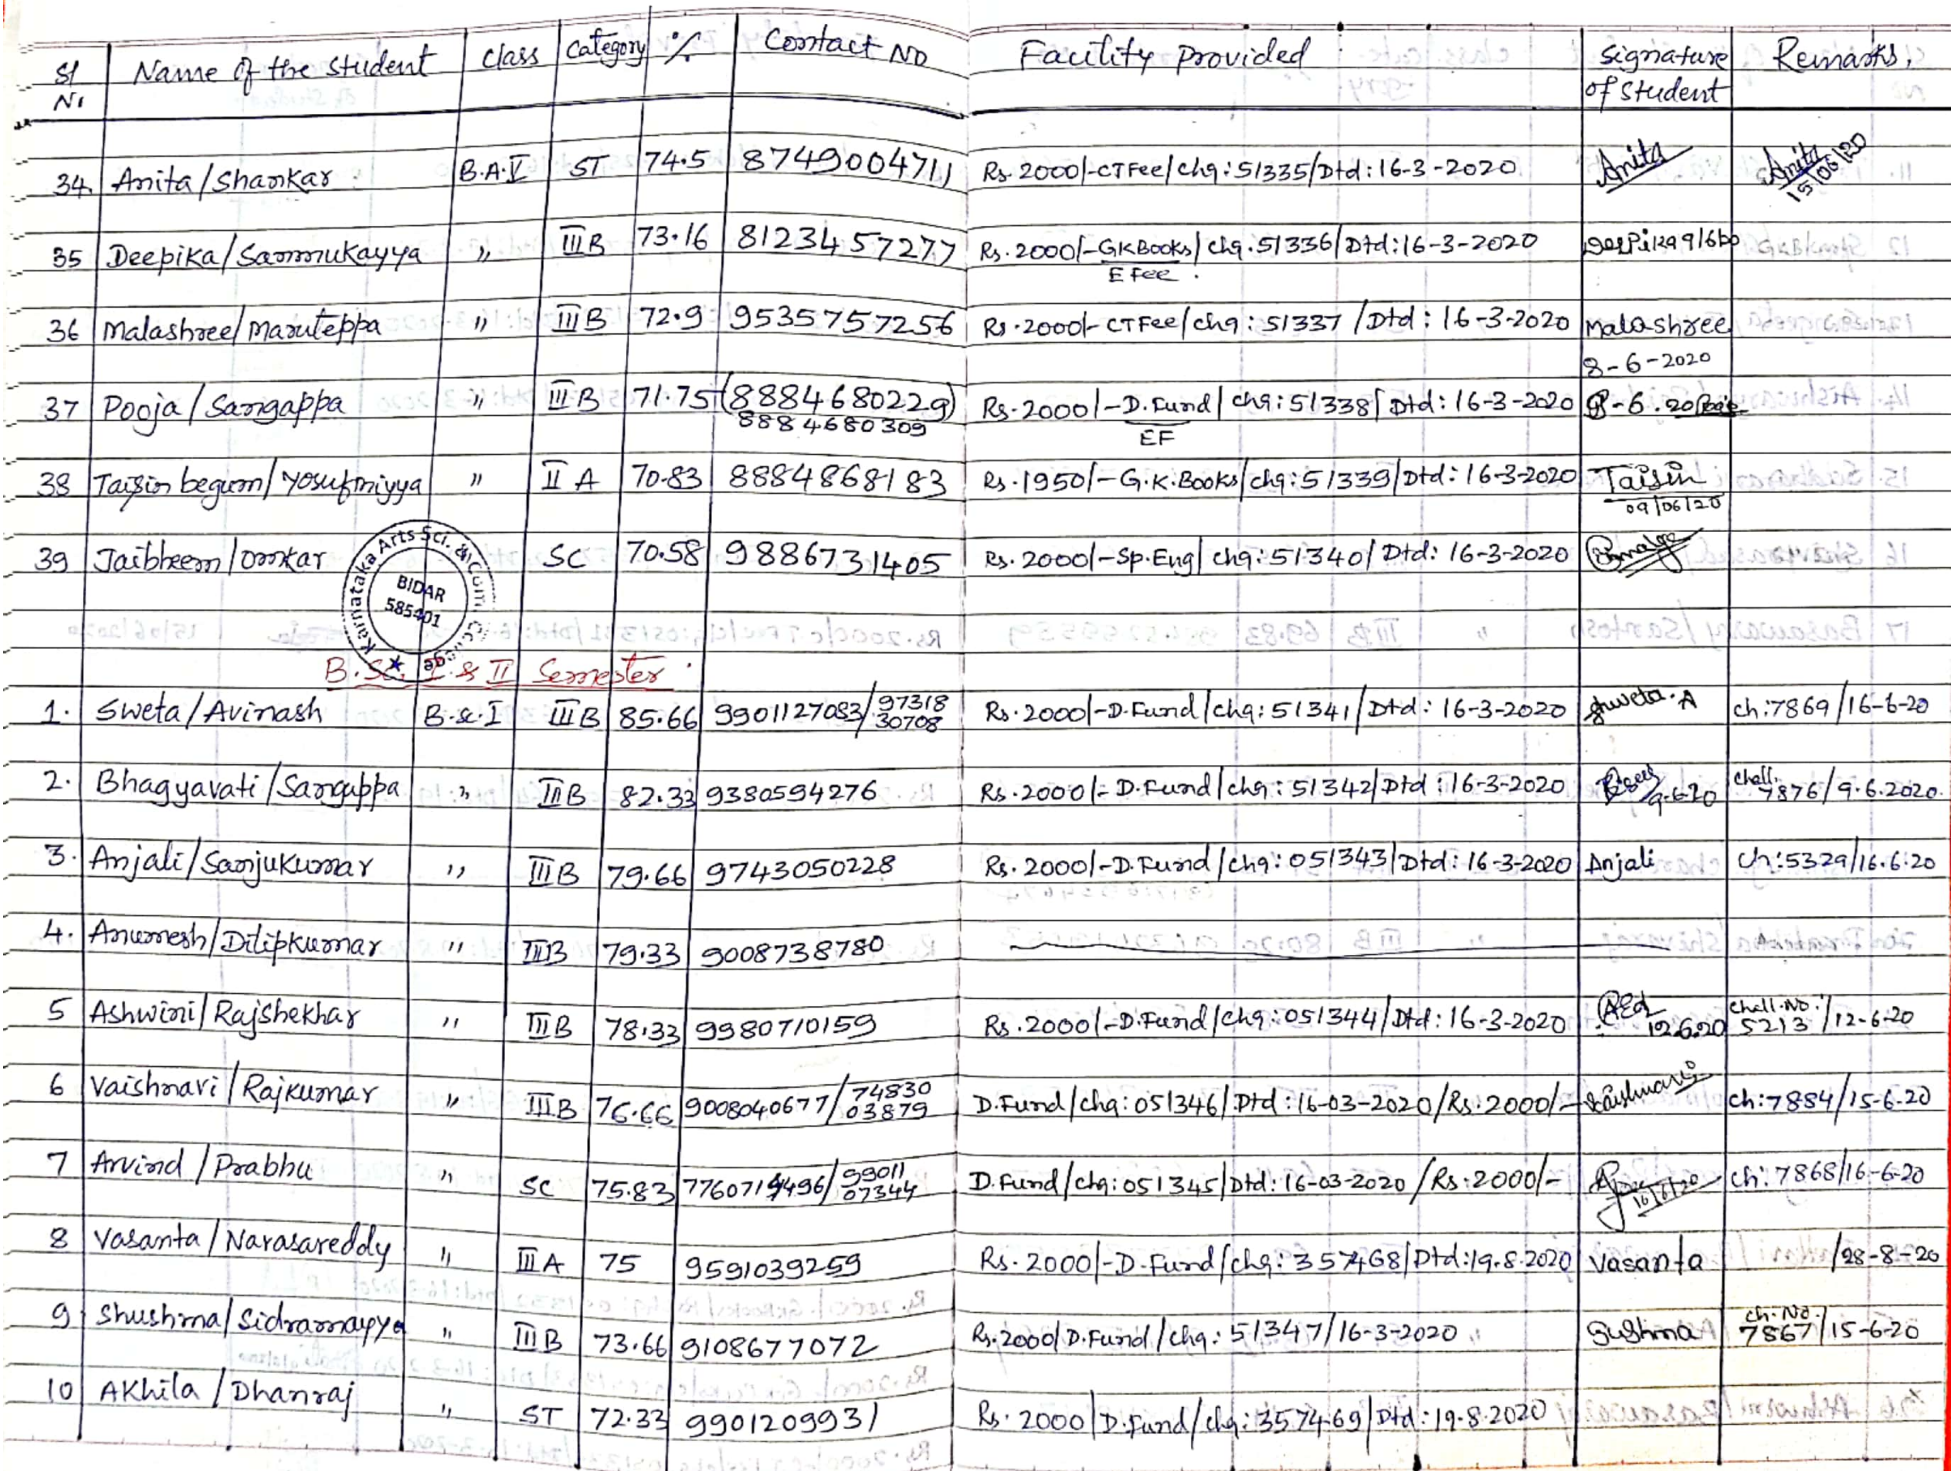 Sl No Name of the student class Category % Contact NO Facility provided signature of student Remarks.
34. Anita/Shankar B.A.V ST 74.5 8749004711 Rs. 2000/-CTFee/chq:51335/Dtd:16-3-2020 Anita Anita 15/06/20
35 Deepika/Sanmukayya " IIIB 73.16 8123457277 Rs.2000/-GKBooks/chq:51336/Dtd:16-3-2020 Deepika
E fee.
36 Malashree/Maruteppa " IIIB 72.9 9535757256 Rs.2000/-CTFee/chq:51337/Dtd:16-3-2020 Malashree
8-6-2020
37 Pooja/Sangappa " IIIB 71.75 (8884680229) Rs.2000/-D.Fund/chq:51338/Dtd:16-3-2020
8884680309 EF
38 Taisin begum/yosufmiyya " II A 70.83 8884868183 Rs.1950/-G.K.Books/chq:51339/Dtd:16-3-2020 Taisin
09/06/20
39 Jaibheem/omkar SC 70.58 9886731405 Rs.2000/-Sp.Eng/chq:51340/Dtd:16-3-2020
Karnataka Arts Sci. & Com. College
BIDAR
585401
B.Sc. I & II Semester
1. Sweta/Avinash B.Sc.I IIIB 85.66 9901127083/97318 30708 Rs.2000/-D.Fund/chq:51341/Dtd:16-3-2020 Shweta.A ch:7869/16-6-20
2. Bhagyavati/Sangappa " IIIB 82.33 9380594276 Rs.2000/-D.Fund/chq:51342/Dtd:16-3-2020 9.6.20 chall. 7876/9.6.2020.
3. Anjali/Sanjukumar " IIIB 79.66 9743050228 Rs.2000/-D.Fund/chq:051343/Dtd:16-3-2020 Anjali ch:5329/16.6.20
4. Anumesh/Dilipkumar " IIIB 79.33 9008738780
5 Ashwini/Rajshekhar " IIIB 78.33 9980710159 Rs.2000/-D.Fund/chq:051344/Dtd:16-3-2020 12.6.20 chall.No. 5213/12-6-20
6 Vaishnavi/Rajkumar " IIIB 76.66 9008040677/74830 03879 D.Fund/chq:051346/Dtd:16-03-2020/Rs.2000/- Vaishnavi ch:7884/15-6-20
7 Arvind/Prabhu " SC 75.83 7760714496/99011 07344 D.Fund/chq:051345/Dtd:16-03-2020/Rs.2000/- 16/6/20 ch:7868/16-6-20
8 Vasanta/Narasareddy " IIIA 75 9591039259 Rs.2000/-D.Fund/chq:357468/Dtd:19.8.2020 Vasanta /28-8-20
9 Shushma/Sidramayya " IIIB 73.66 9108677072 Rs.2000/D.Fund/chq:51347/16-3-2020 Sushma ch.No. 7867/15-6-20
10 Akhila/Dhanraj " ST 72.33 9901209931 Rs.2000/D.Fund/chq:357469/Dtd:19.8.2020